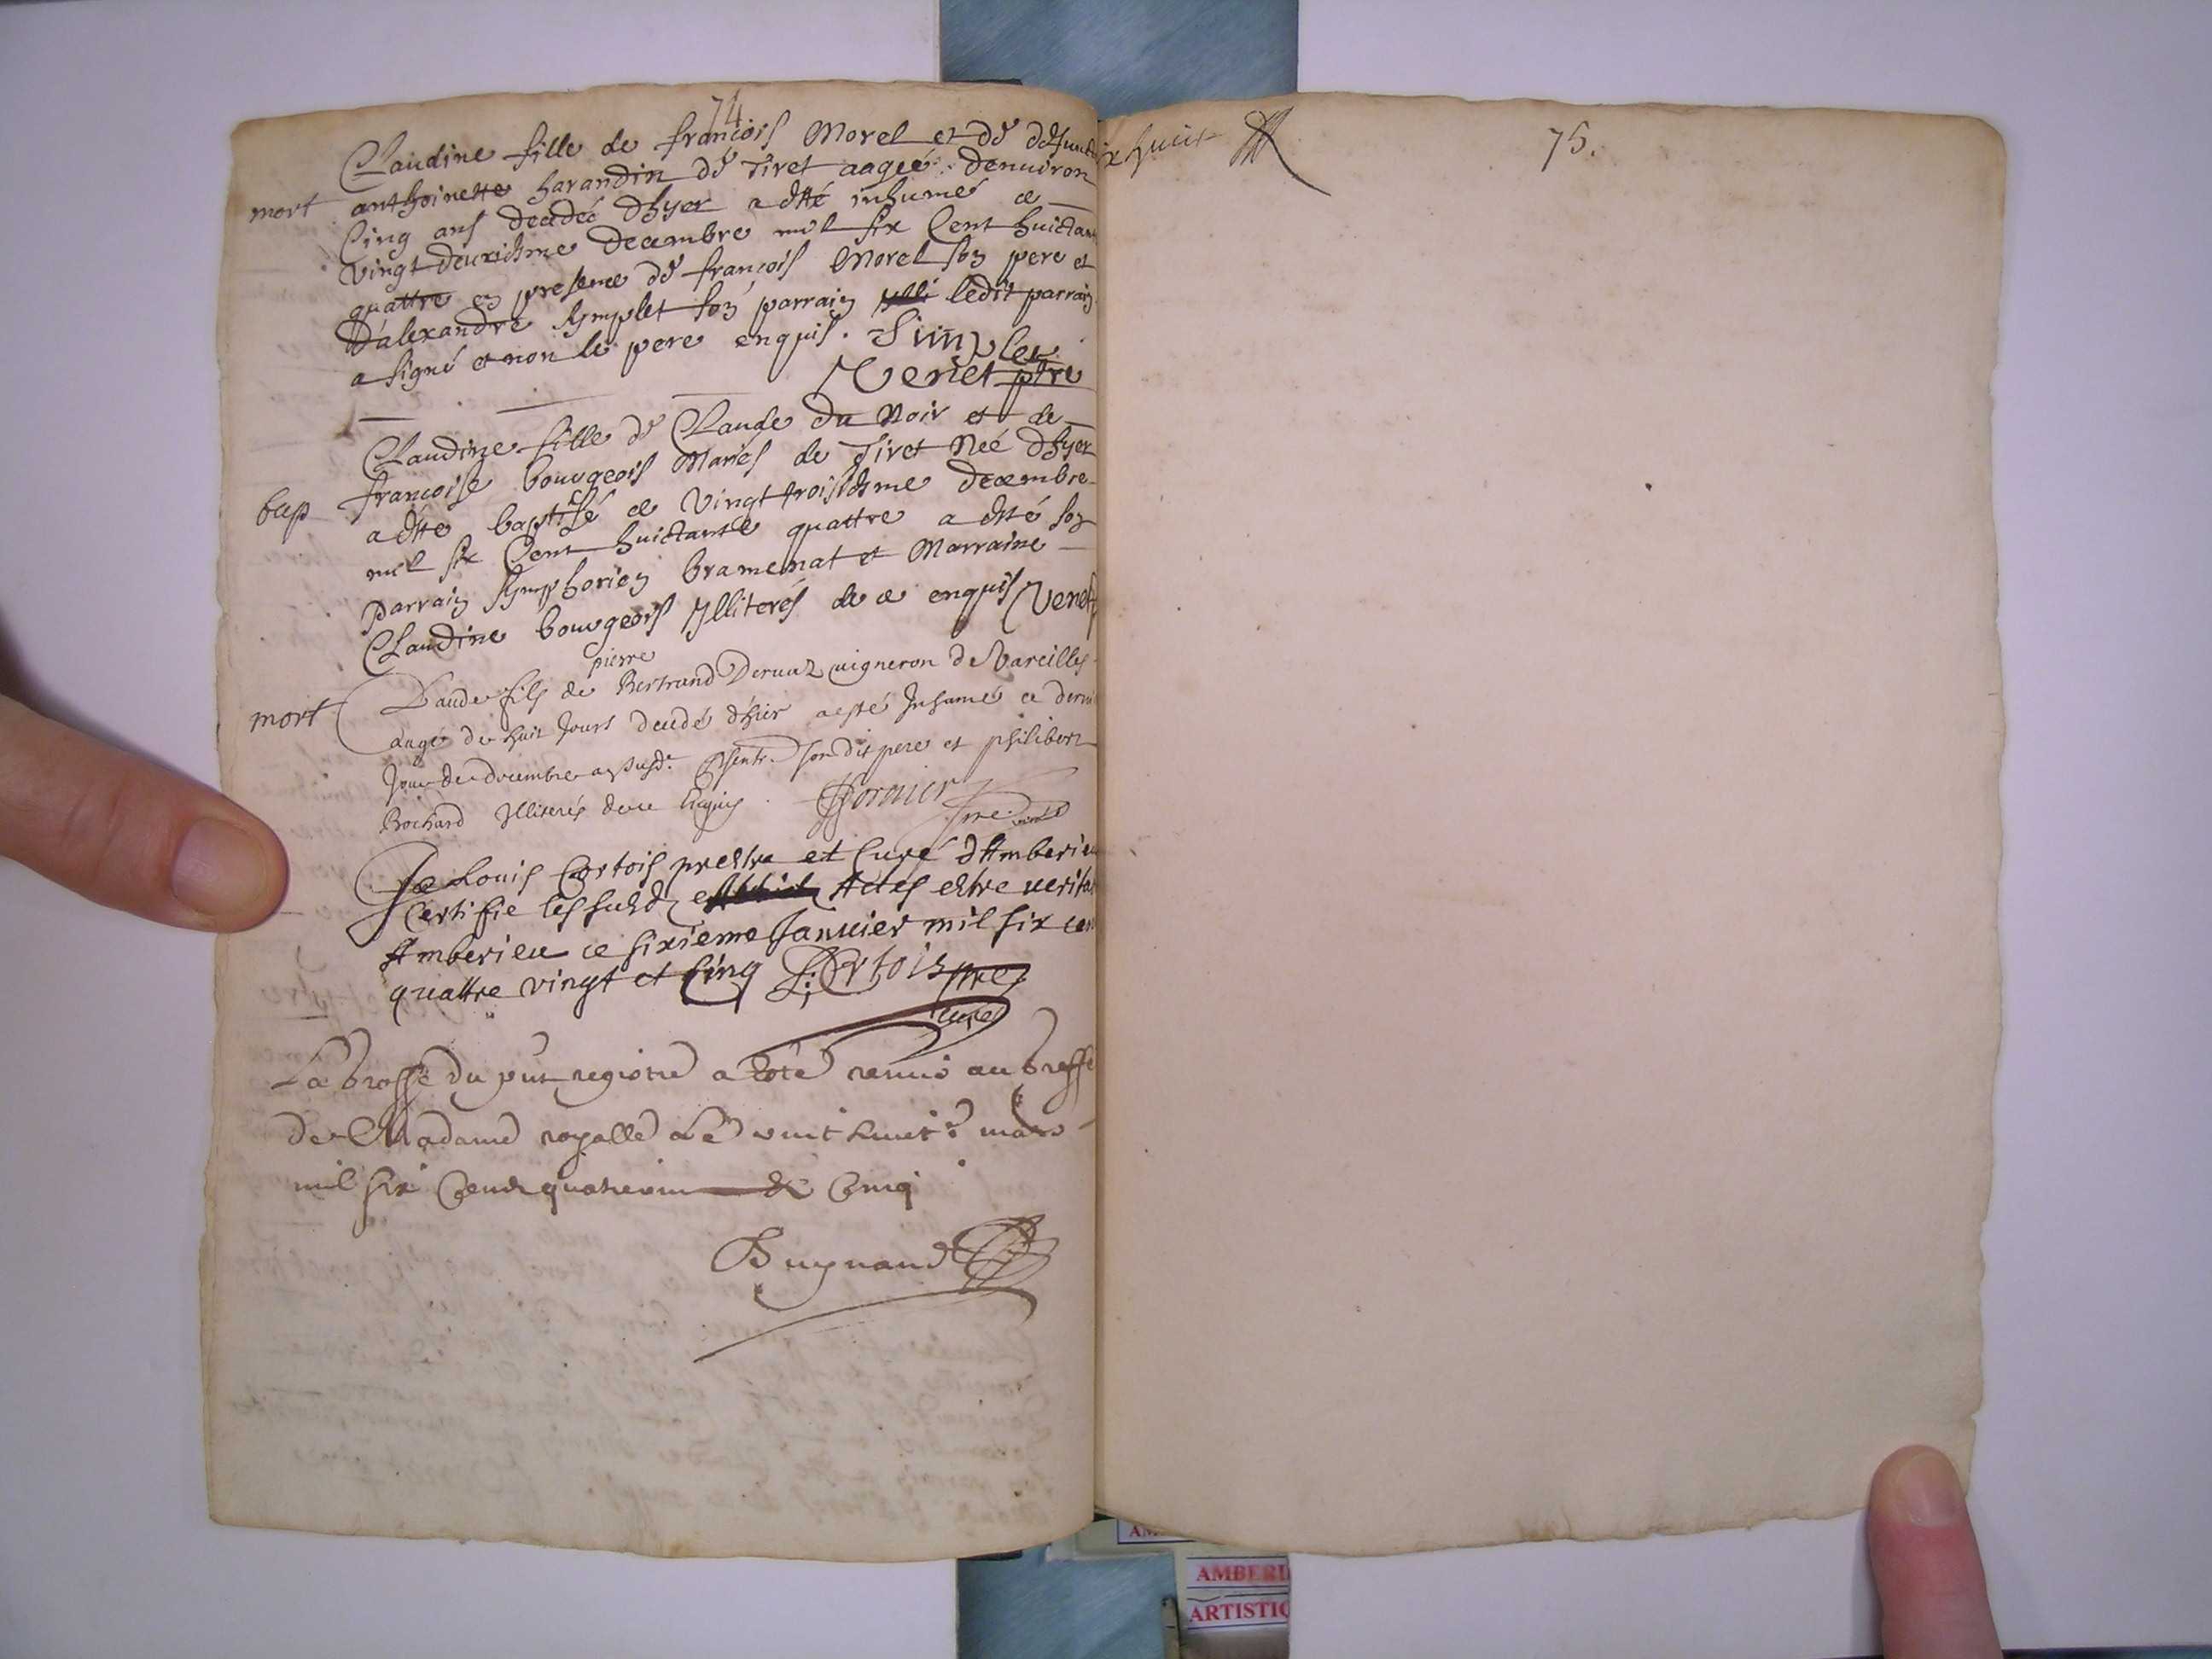 74
Claudine fille de françois Morel et de defunct
anthoinette harandin de Tiret aagéé denuiron
mort
Cinq ans decedéé dhyer a esté inhumé ce
vingt deuxiesme decembre mil six Cent huictant
quattre en presence de françois Morel son pere et
D'alexandre Symplet son parrain ledit parrain
a signé et non le pere enquis. Simplet
Venet ptre
Claudine fille de Claude du Noir et de
françoise bourgeois Mariés de Tiret Néé dhyer
bap
a esté baptisé ce Vingt troisiesme decembre
mil six Cent huictante quattre a esté son
parrain Symphorien bramenat et Marraine
Claudine bourgeois Illiterés de ce enquis Venet
pierre
Claude fils de Bertrand vigneron de Vareilles
mort
aagé de huit Jours decedé d'hier a esté Inhumé ce dernie
Jour de decembre son dit pere et philibert
Bochard Illiterés de ce Enquis
Je Louis Cortois prestre et Curé d'Amberieu
Certifie les susd Actes estre veritab
Amberieu ce sixieme Januier mil six cen
quattre vingt et Cinq L: Cortois pre
Curé
La Grosse du pnt registre a esté remis au Greffe
de Madame royalle Le vint huict mars
mil six Cent quatrevin et Cinq
huit
75.
AMBERI
ARTISTIQ